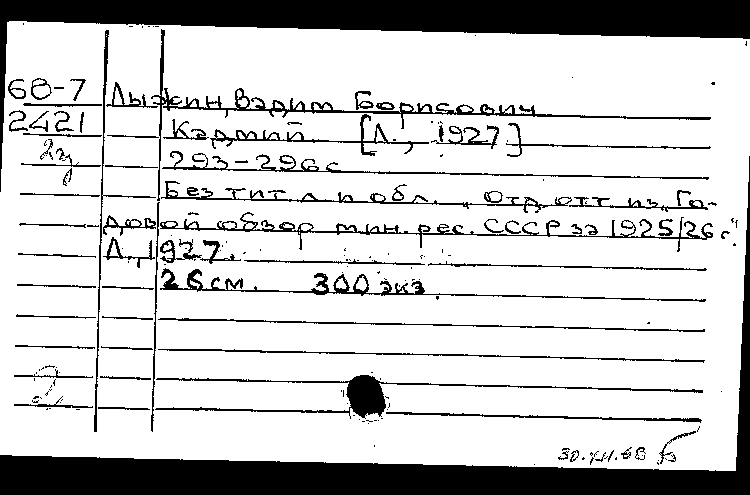 68-7 Лыжин, Вадим Борисович
2421 Кадмий. [Л., 1927]
2э 293-296 с
Без тит. л и обл. Отд. отт из „Го-
довой обзор мин. рес. СССР за 1925/26 г."
Л., 1927.
26 см. 300 экз.
2
30.XII.68